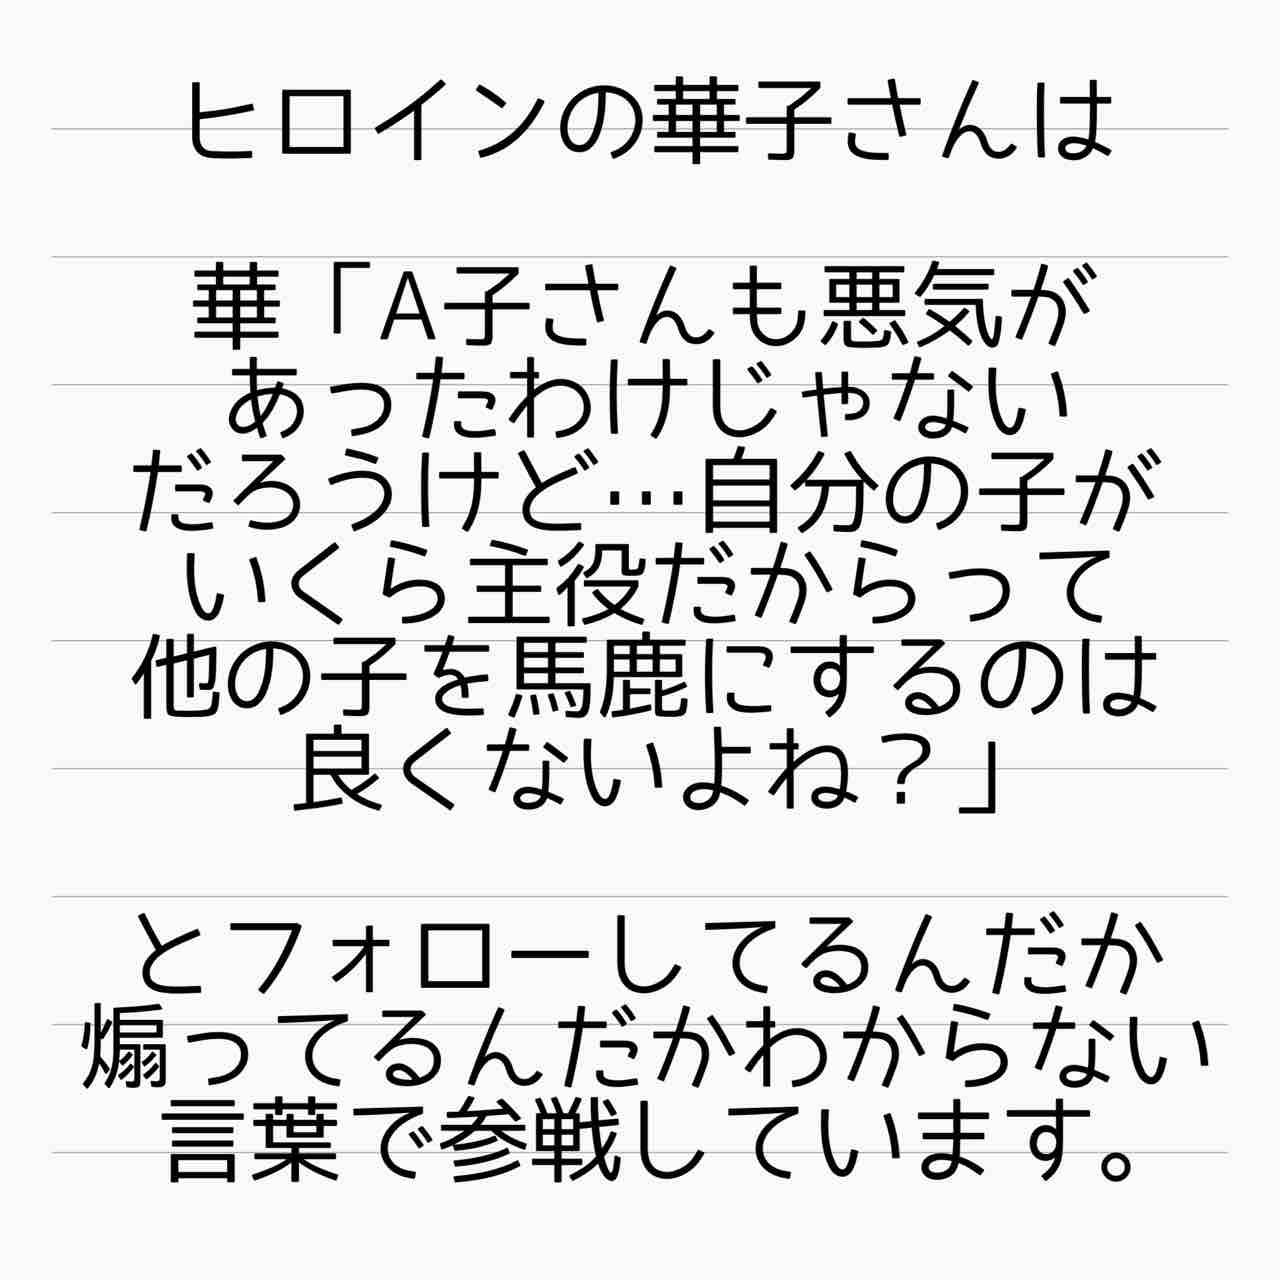 ヒロインの華子さんは
華「A子さんも悪気が
あったわけじゃない
だろうけど…自分の子が
いくら主役だからって
他の子を馬鹿にするのは
良くないよね？」
とフォローしてるんだか
煽ってるんだかわからない
言葉で参戦しています。